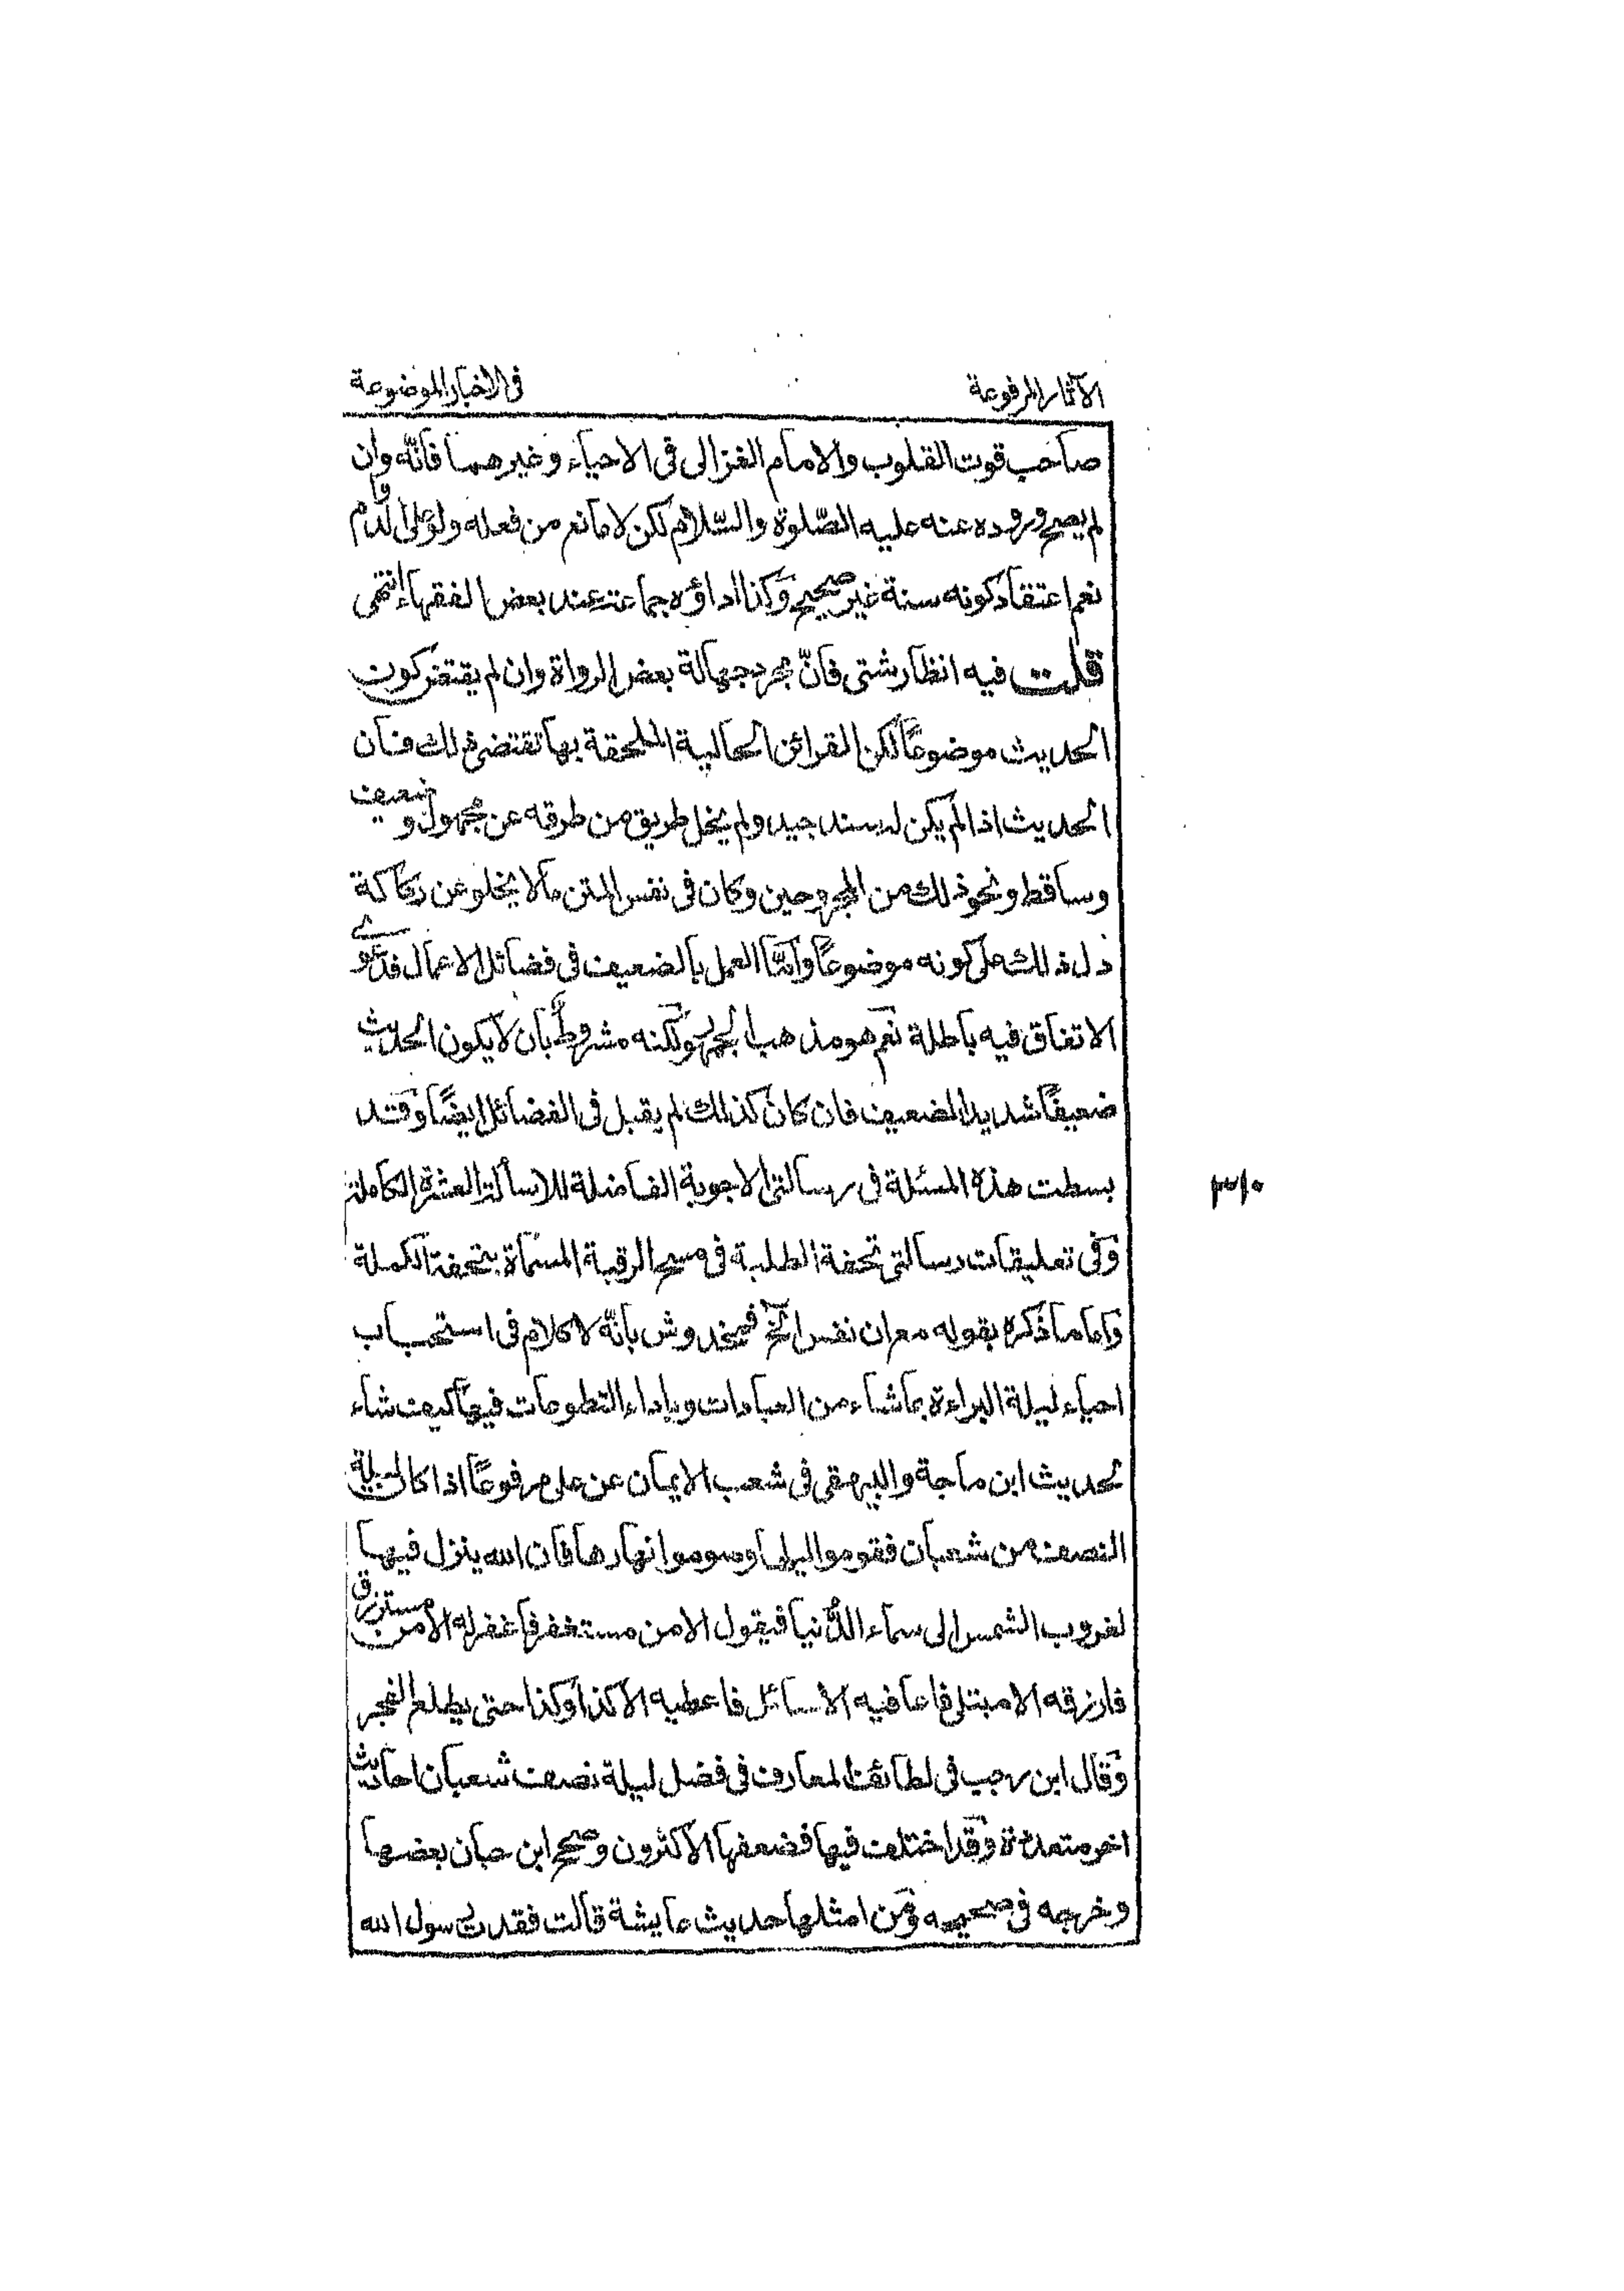 الآثار المرفوعة
فى الاخبار الموضوعة
صاحب قوت القلوب والامام الغزالى فى الاحياء وغيرهما فانّه وان
لم يصح وروده عنه عليه الصّلوة والسّلام لكن لا مانع من فعله ولو على الدوام
نعم اعتقاد كونه سنة غير صحيح وكذا اداؤه جماعة عند بعض الفقهاء انتهى
قلت فيه انظار شتى فانّ مجرد جهالة بعض الرواة وان لم يقتض كون
الحديث موضوعًا لكن القرائن الحالية الملحقة بها تقتضى ذلك فان
الحديث اذا لم يكن له سند جيد ولم يخل طريق من طرقه عن مجهول و ضعيف
وساقط ونحو ذلك من المجروحين وكان فى نفس المتن ما لا يخلو عن ركاكة
دل ذلك على كونه موضوعًا وامّا العمل بالضعيف فى فضائل الاعمال فدعوى
الاتفاق فيه باطلة نعم هو مذهب الجمهور لكنه مشروط بان لا يكون الحديث
ضعيفًا شديد الضعيف فان كان كذلك لم يقبل فى الفضائل ايضًا وقد
بسطت هذه المسئلة فى رسالتى الاجوبة الفاضلة للاسألة العشرة الكاملة
وفى تعليقات رسالتى تحفة الطلبة فى مسح الرقبة المسمّاة بتحفة الكملة
واما ما ذكره بقوله مع ان نفس الخ فمخدوش بانّه لا كلام فى استحباب
احياء ليلة البراءة بما شاء من العبادات وباداء التطوعات فيها كيف شاء
لحديث ابن ماجة والبيهقى فى شعب الايمان عن على مرفوعًا اذا كان ليلة
النصف من شعبان فقوموا ليلها وصوموا نهارها فان الله ينزل فيها
لغروب الشمس الى سماء الدّنيا فيقول الا من مستغفر فاغفر له الا من مسترزق
فارزقه الا مبتلى فاعافيه الا سائل فاعطيه الا كذا وكذا حتى يطلع الفجر
وقال ابن رجب فى لطائف المعارف فى فضل ليلة نصف شعبان احاديث
اخر متعددة وقد اختلف فيها فضعفها الاكثرون وصحح ابن حبان بعضها
وخرجه فى صحيحه ومن امثلها حديث عايشة قالت فقدت رسول الله